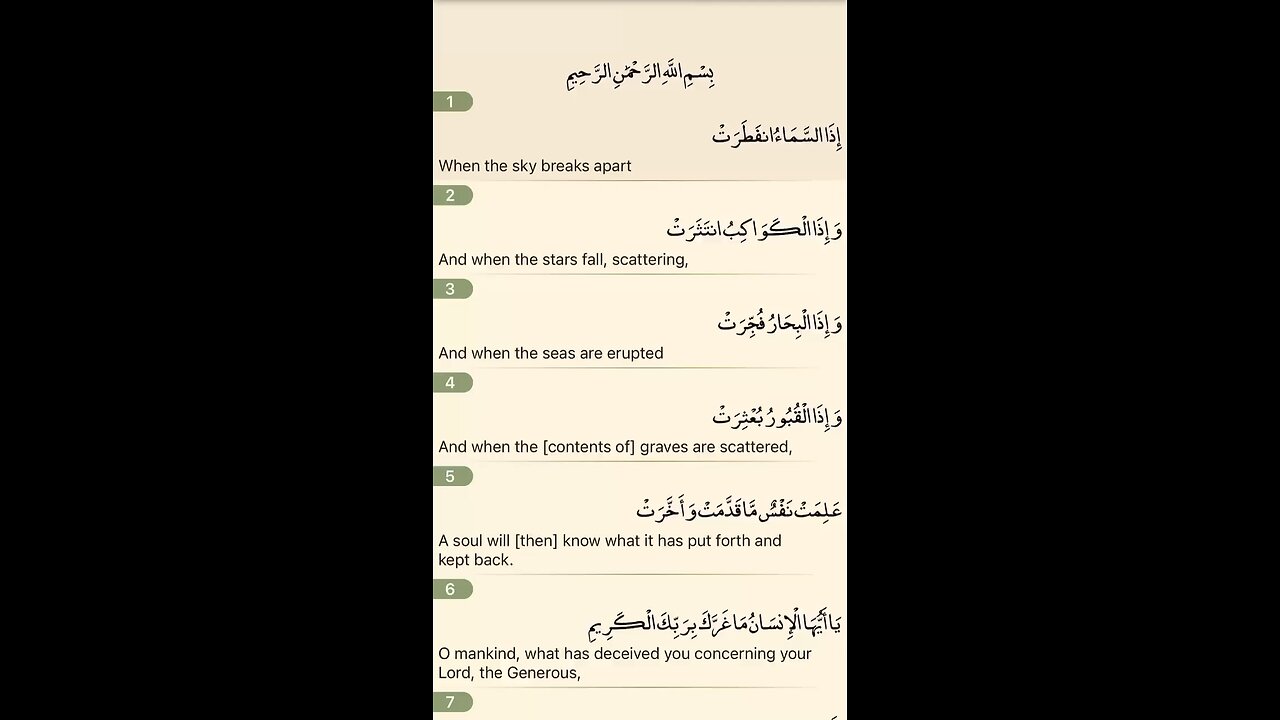 بِسْمِ اللَّهِ الرَّحْمَٰنِ الرَّحِيمِ
1
إِذَا السَّمَاءُ انفَطَرَتْ
When the sky breaks apart
2
وَإِذَا الْكَوَاكِبُ انتَثَرَتْ
And when the stars fall, scattering,
3
وَإِذَا الْبِحَارُ فُجِّرَتْ
And when the seas are erupted
4
وَإِذَا الْقُبُورُ بُعْثِرَتْ
And when the [contents of] graves are scattered,
5
عَلِمَتْ نَفْسٌ مَّا قَدَّمَتْ وَأَخَّرَتْ
A soul will [then] know what it has put forth and
kept back.
6
يَا أَيُّهَا الْإِنسَانُ مَا غَرَّكَ بِرَبِّكَ الْكَرِيمِ
O mankind, what has deceived you concerning your
Lord, the Generous,
7